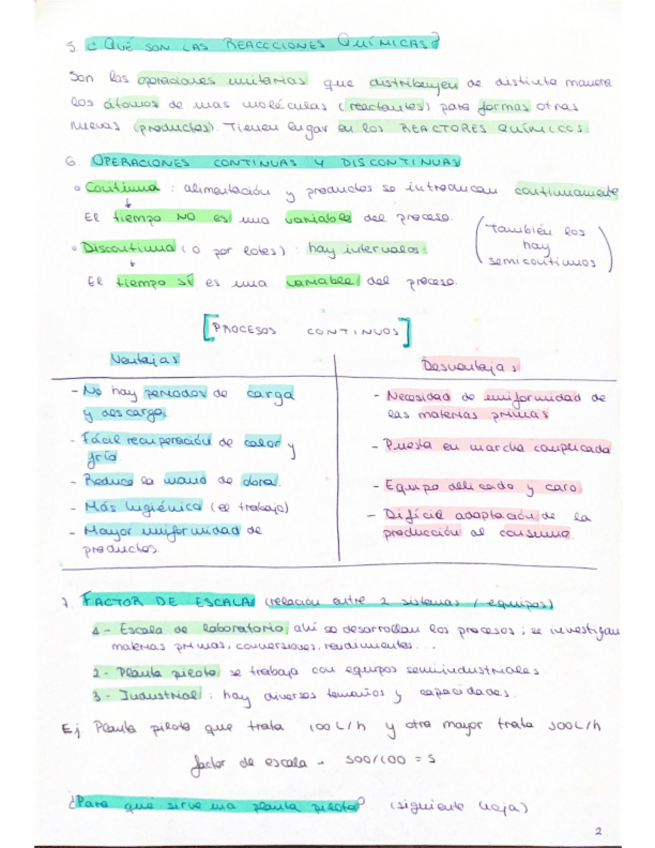 5. ¿QUÉ SON LAS REACCCIONES QUÍMICAS?
Son las operaciones unitarias que distribuyen de distinta manera
los átomos de unas moléculas (reactantes) para formas otras
nuevas (productos). Tienen lugar en los REACTORES QUÍMICOS.
6. OPERACIONES CONTINUAS Y DISCONTINUAS
Continua: alimentación y productos se introducen continuamente
El tiempo NO es una variable del proceso.
(También los hay semicontinuos)
Discontinua (o por lotes): hay intervalos.
El tiempo SÍ es una variable del proceso.
[PROCESOS CONTINUOS]
Ventajas
- No hay periodos de carga
y descarga.
- Fácil recuperación de calor y
frío
- Reduce la mano de obra.
- Más higiénico (el trabajo)
- Mayor uniformidad de
productos.
Desventajas
- Necesidad de uniformidad de
las materias primas
- Puesta en marcha complicada
- Equipo delicado y caro
- Difícil adaptación de la
producción al consumo.
7. FACTOR DE ESCALA (relación entre 2 sistemas / equipos)
1- Escala de laboratorio, ahí se desarrollan los procesos; se investigan
materias primas, conversiones, rendimientos...
2- Planta piloto: se trabaja con equipos semiindustriales.
3- Industrial: hay diversos tamaños y capacidades.
Ej. Planta piloto que trata 100L/h y otra mayor trata 500L/h
factor de escala → 500/100 = 5
¿Para que sirve una planta piloto? (siguiente hoja)
2